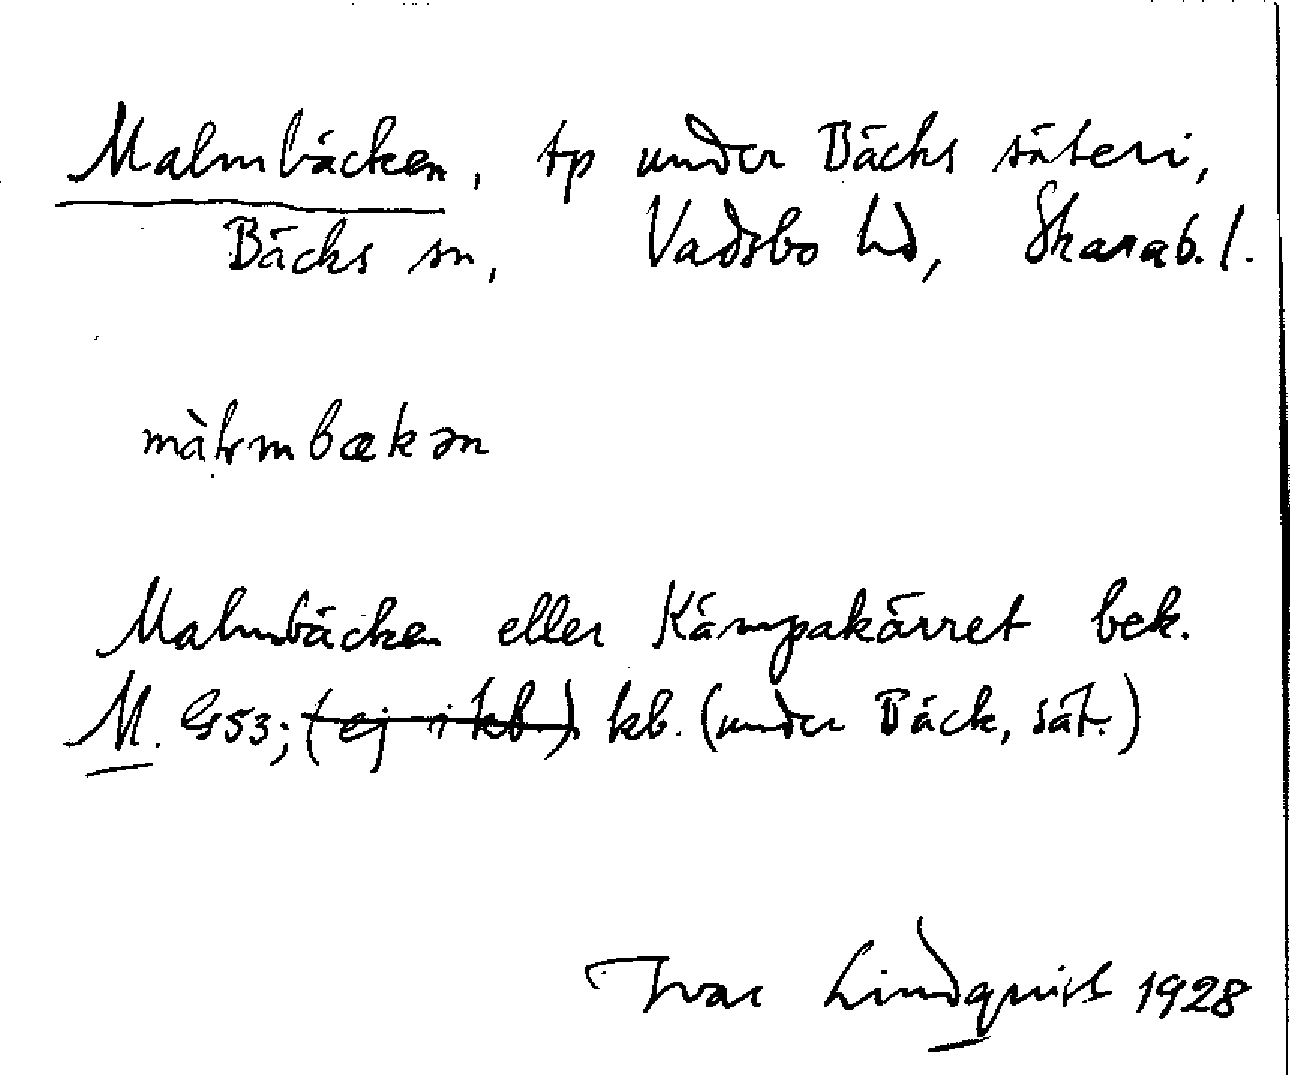 Malmbäcken, tp under Bäcks säteri,
Bäcks sn, Vadsbo hd, Skarab. l.
Malmbäcken eller Kämpakärret bek.
M. G53; (ej i kb.) kb. (under Bäck, sät.)
Ivar Lindquist 1928